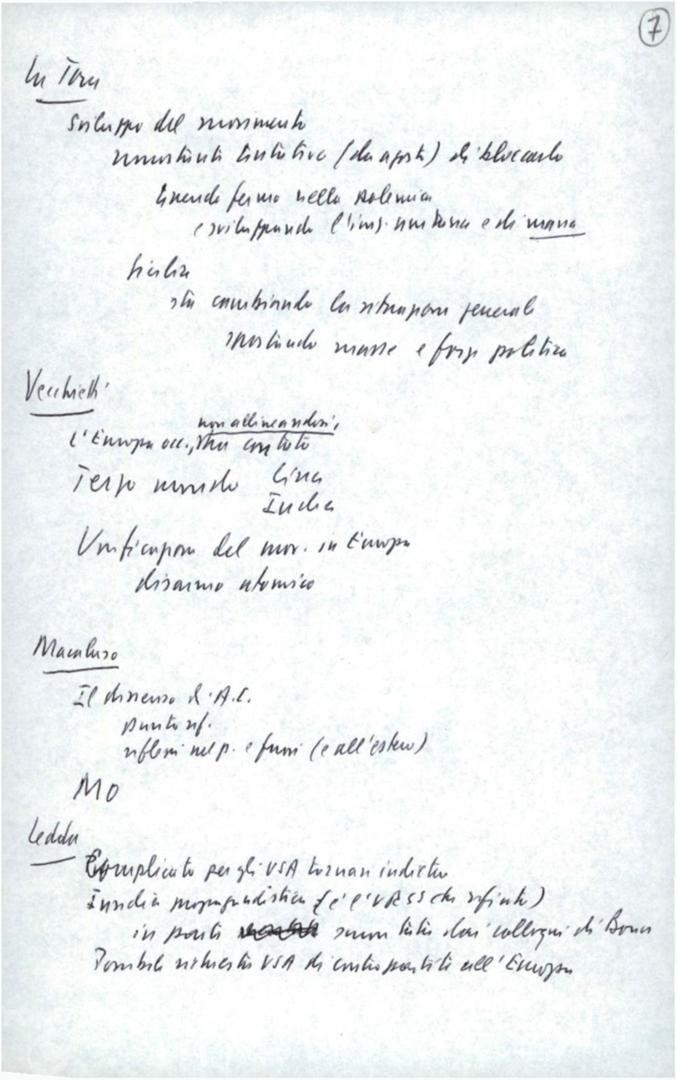 7
La Torre
Sviluppo del movimento
nonostante tentativo (da agosto) di bloccarlo
tenendo fermo nella polemica
e sviluppando l'iniz. unitaria e di massa
Sicilia
sta cambiando la situazione generale
spostando masse e forze politiche
Vecchietti
non allineandosi,
L'Europa occ., ma contato
Terzo mondo Cina
India
Unificazione del mov. in Europa
disarmo atomico
Macaluso
Il dissenso d'A.C.
punto rif.
riflessi nel p. e fuori (e all'estero)
MO
Ledda
Complicato per gli USA tornare indietro
Insidia propagandistica (è l'URSS che rifiuta)
in parte smontata dai colloqui di Bonn
Possibile richiesta USA di contropartite all'Europa